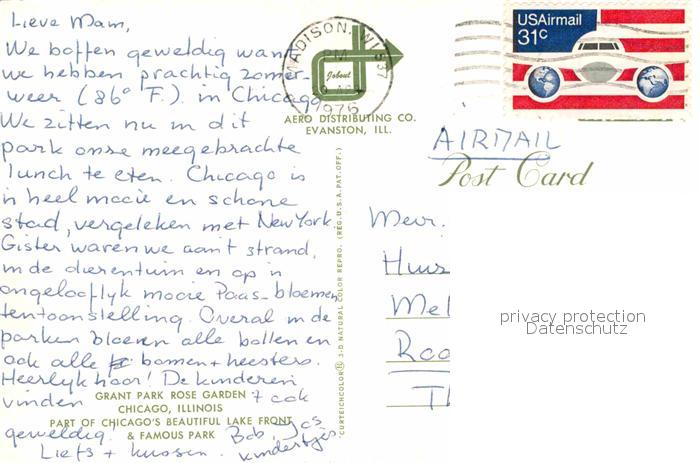 Lieve Mam,
We boffen geweldig want
we hebben prachtig zomer-
weer (86° F.) in Chicago
We zitten nu in dit
park onze meegebrachte
lunch te eten. Chicago is
'n heel mooie en schone
stad, vergeleken met New York.
Gister waren we aan't strand,
in de dierentuin en op 'n
ongelooflijk mooie Paas-bloemen
tentoonstelling. Overal in de
parken bloeien alle bollen en
ook alle bomen + heesters.
Heerlijk hoor! De kinderen
vinden 't ook
geweldig.
Liefs + kussen.
Bob, Jos
kindertjes
GRANT PARK ROSE GARDEN
CHICAGO, ILLINOIS
PART OF CHICAGO'S BEAUTIFUL LAKE FRONT
& FAMOUS PARK
MADISON, WIS 537
PM
1976
Jobout
AERO DISTRIBUTING CO.
EVANSTON, ILL.
CURTEICHCOLOR® 3-D NATURAL COLOR REPRO. (REG. U.S.A. PAT. OFF.)
USAirmail
31c
AIRMAIL
Post Card
Mevr.
Huis
Mel
Roo
Th
privacy protection
Datenschutz